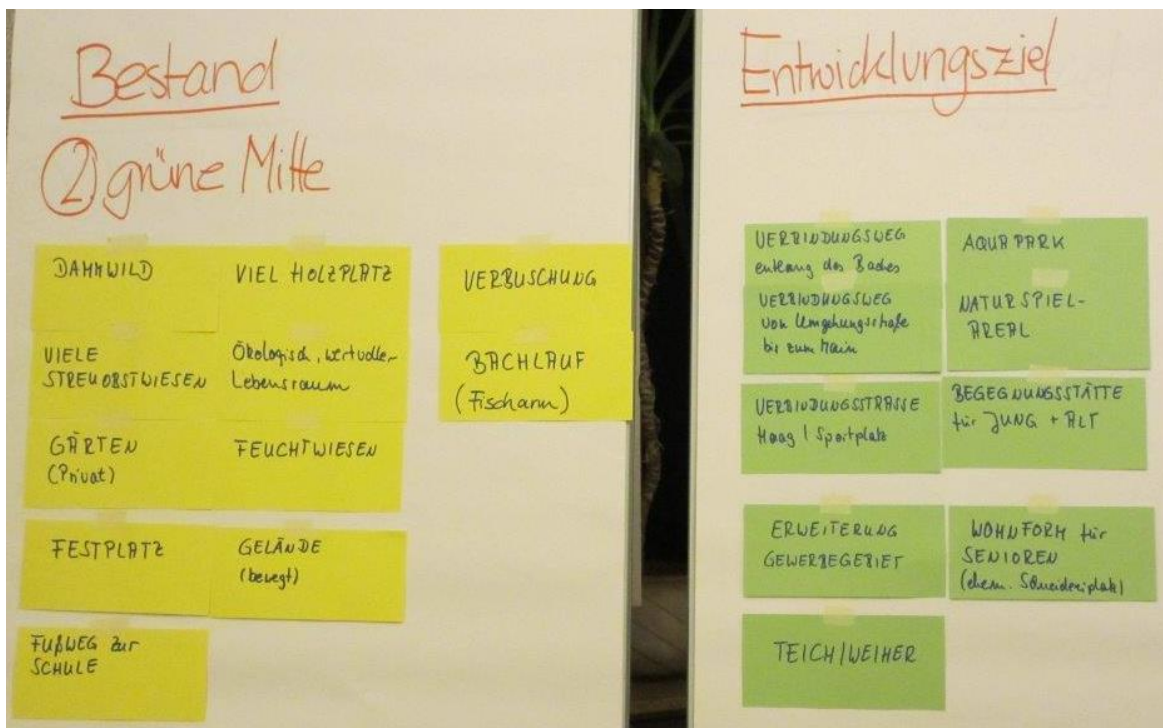 Bestand
② grüne Mitte
DAMWILD
VIEL HOLZPLATZ
VERBUSCHUNG
VIELE
STREUOBSTWIESEN
Ökologisch, wertvoller
Lebensraum
BACHLAUF
(Fischarm)
GÄRTEN
(Privat)
FEUCHTWIESEN
FESTPLATZ
GELÄNDE
(bewegt)
FUßWEG zur
SCHULE
Entwicklungsziel
VERBINDUNGSWEG
entlang des Baches
AQUAPARK
VERBINDUNGSWEG
von Umgehungsstraße
bis zum Main
NATURSPIEL-
AREAL
VERBINDUNGSSTRASSE
Haag / Sportplatz
BEGEGNUNGSSTÄTTE
für JUNG + ALT
ERWEITERUNG
GEWERBEGEBIET
WOHNFORM für
SENIOREN
(ehem. Schneidereiplatz)
TEICH/WEIHER